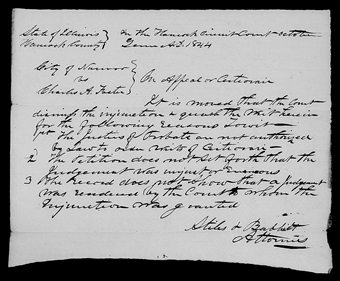 State of Illinois } In the Hancock Circuit Court October
Hancock County } Term A.D. 1844
City of Nauvoo
vs } On Appeal or Certiorari
Charles A. Foster
It is moved that the Court
dismiss the injunction & quash the Writ herein
for the following reasons to wit
1st The Justice of Probate on not authorized
by Law to issue Writs of Certiorari
2 The Petition does not Set forth that the
Judgement was unjust or Erroneous
3 The Record does not Show that a Judgement
was rendered by the Court to whom the
Injunction was granted
Stiles & Babbitt
Attornies